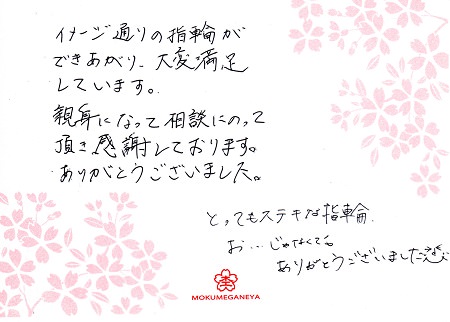 イメージ通りの指輪が
できあがり、大変満足
しています。
親身になって相談にのって
頂き感謝しております。
ありがとうございました。
とってもステキな指輪
お…じゃなくても
ありがとうございました
MOKUMEGANEYA